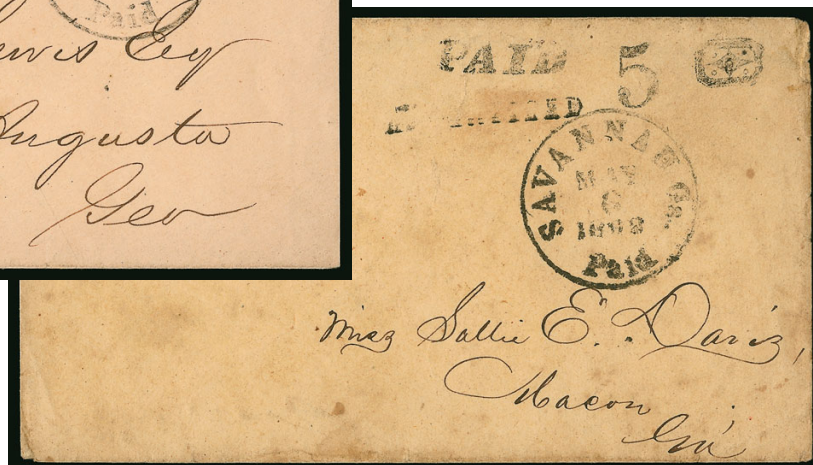 Paid
Esq
Augusta
Geo
PAID
5
SAVANNAH Ga.
MAY
6
1862
Paid
Miss Sallie E. Davis,
Macon
Ga